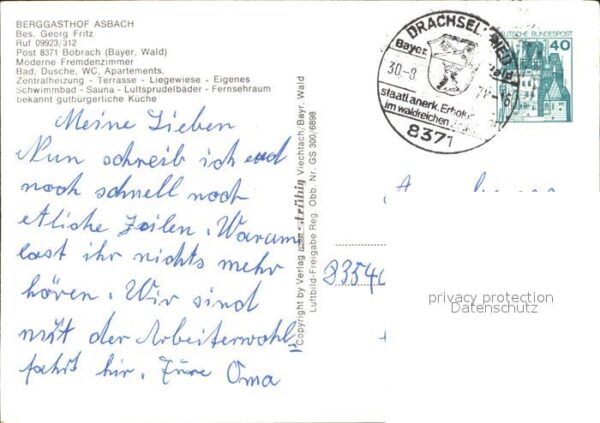 BERGGASTHOF ASBACH
Bes. Georg Fritz
Ruf 09923/312
Post 8371 Böbrach (Bayer. Wald)
Moderne Fremdenzimmer
Bad, Dusche, WC, Apartements.
Zentralheizung - Terrasse - Liegewiese - Eigenes
Schwimmbad - Sauna - Luftsprudelbäder - Fernsehraum
bekannt gutbürgerliche Küche
Meine Lieben
Nun schreib ich euch
noch schnell noch
etliche Zeilen. Warum
last ihr nichts mehr
hören. Wir sind
mit der Arbeiterwohl
fahrt hir. Eure Oma
Copyright by Verlag Viechtach/Bayr. Wald
Luftbild-Freigabe Reg. Obb. Nr. GS 300/6898
DRACHSEL
Bayer.
30-8
-16
staatl. anerk. Erholu
im waldreichen
8371
DEUTSCHE BUNDESPOST
40
8354
privacy protection
Datenschutz